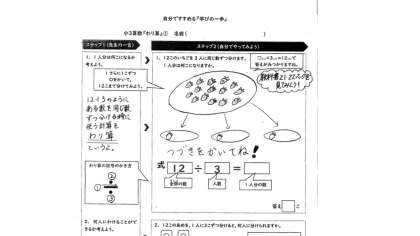 自分ですすめる「学びの一歩」
小3算数「わり算」① 名前( )
ステップ1(先生の一言)
ステップ2(自分でやってみよう)
1.1人分は何こになるか
考えよう。
さらに1こずつ
◎をかいて、
12こまで分けてみよう。
12÷3のように
ある数を同じ数
ずつ分ける時に
使う計算を
わり算
という。
わり算の記号のかき方
1.12このいちごを3人に同じ数ずつ分けます。
1人分は何こになりますか。
(教科書21・22ページを
見てみよう!)
つづきをかいてね!
式 12 ÷ 3 =
全部の数 人数 1人分の数
答え こ
2.何人にわけることがで
きるか考えよう。
2.12このあめを、1人に3こずつ分けると、何人に分けられますか。